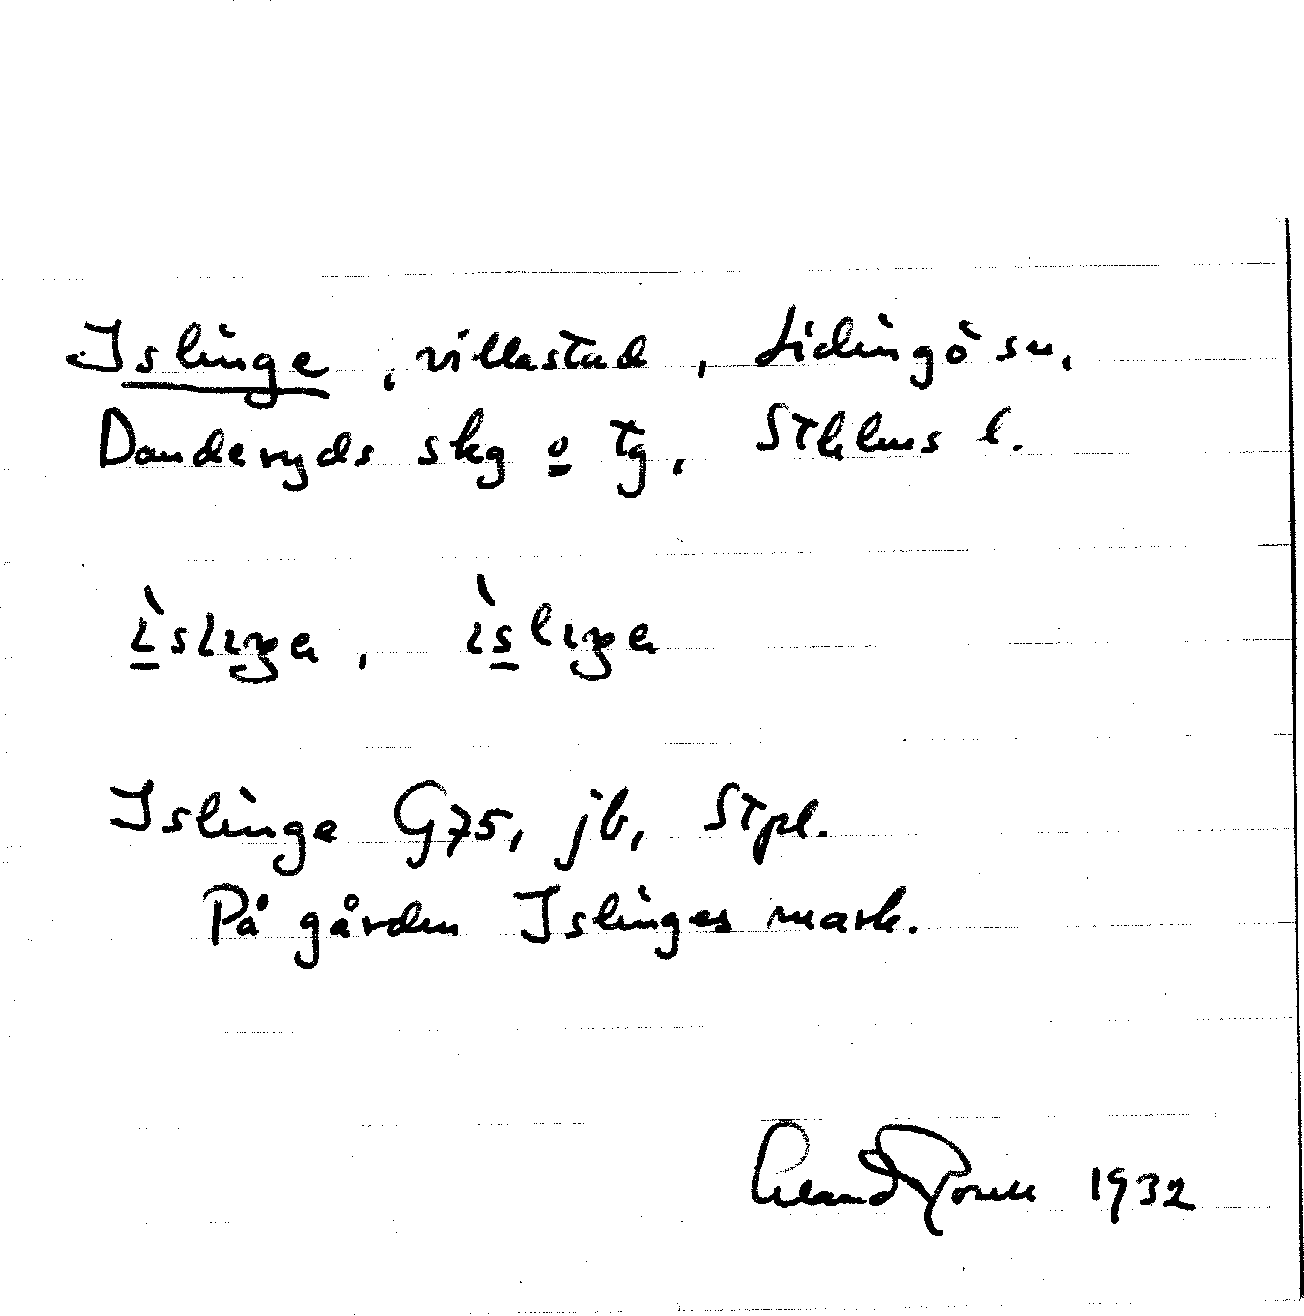 Islinge, villastad, Lidingö sn,
Danderyds skg o tg, Sthlms l.
ìslıŋe, ìslıŋe
Islinge G75, jb, Stpl.
På gården Islinges mark.
1932